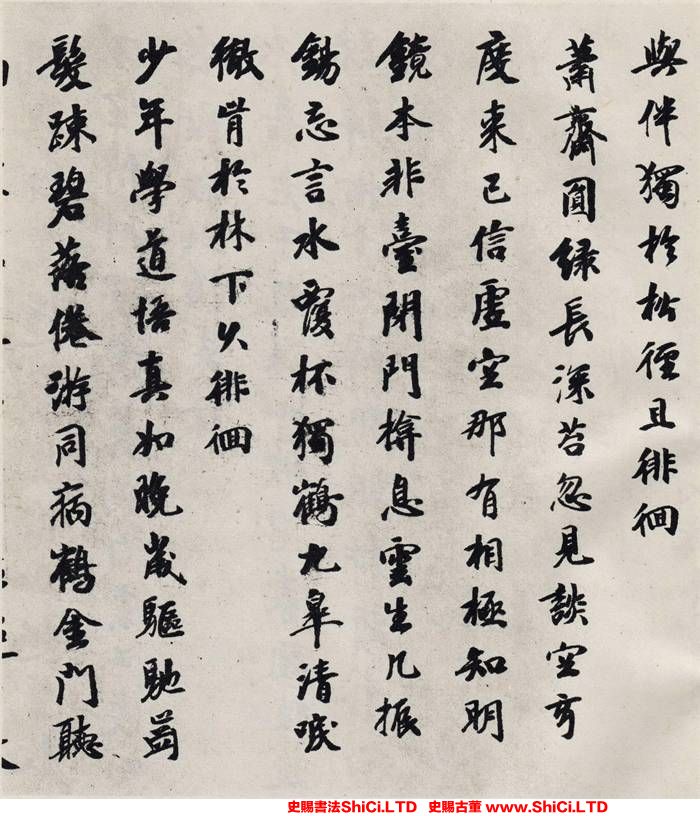 與伴獨於松徑且徘徊
蕭齋圓綠長深苔忽見談空
度来已信虛空那有相極知明
鏡本非臺閉門撿息雲生几振
錫忘言水覆杯獨鶴九皐清唳
徹肯於林下久徘徊
少年學道悟真如晚歲驅馳
髮踈碧落倦游同病鶴金門聽
史賜書法ShiCi.LTD 史賜古董 www.ShiCi.LTD